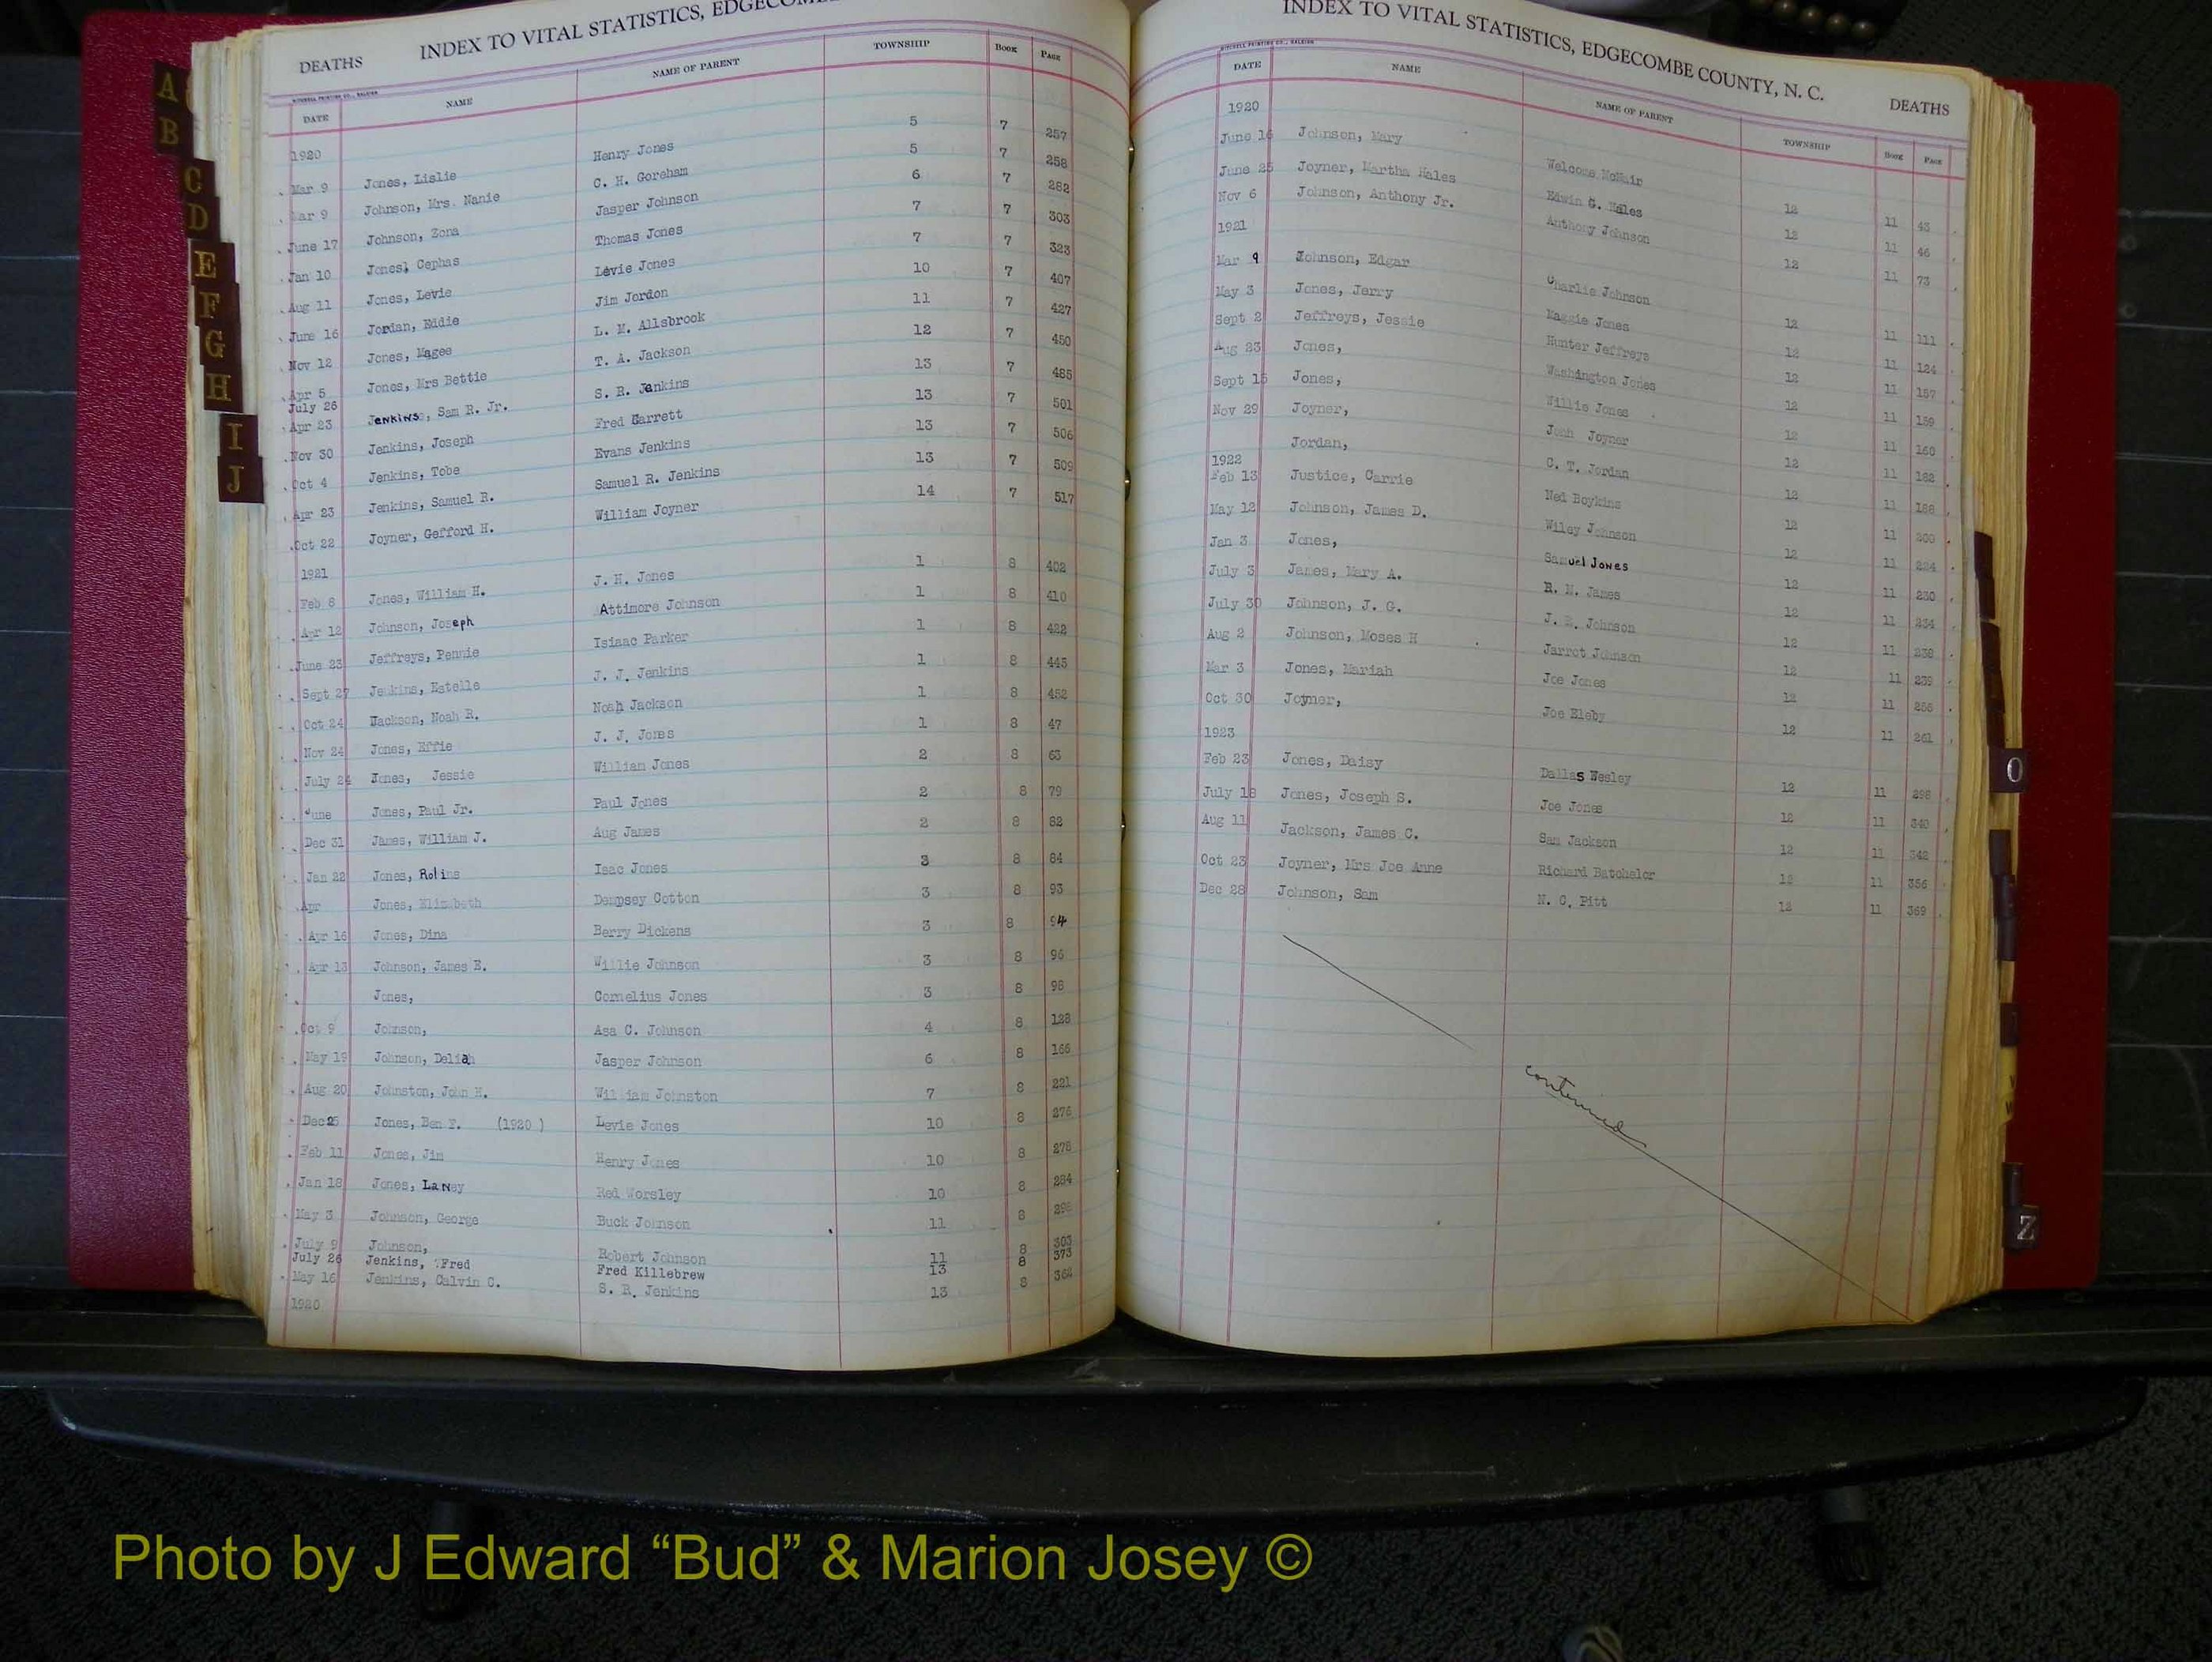 DEATHS INDEX TO VITAL STATISTICS,
MITCHELL PRINTING CO., RALEIGH
DATE NAME NAME OF PARENT TOWNSHIP BOOK PAGE
1920
Mar 9 Jones, Lislie Henry Jones 5 7 257
Mar 9 Johnson, Mrs. Nanie C. H. Goreham 5 7 258
June 17 Johnson, Zona Jasper Johnson 6 7 282
Jan 10 Jones, Cephas Thomas Jones 7 7 303
Aug 11 Jones, Levie Levie Jones 7 7 323
June 16 Jordan, Eddie Jim Jordon 10 7 407
Nov 12 Jones, Magee L. M. Allsbrook 11 7 427
Apr 5 Jones, Mrs Bettie T. A. Jackson 12 7 450
July 26
Apr 23 Jenkins, Sam R. Jr. S. R. Jenkins 13 7 485
Nov 30 Jenkins, Joseph Fred Garrett 13 7 501
Oct 4 Jenkins, Tobe Evans Jenkins 13 7 506
Apr 23 Jenkins, Samuel R. Samuel R. Jenkins 13 7 509
Oct 22 Joyner, Gefford H. William Joyner 14 7 517
1921
Feb 8 Jones, William H. J. H. Jones 1 8 402
Apr 12 Johnson, Joseph Attimore Johnson 1 8 410
June 23 Jeffreys, Pennie Isiaac Parker 1 8 422
Sept 27 Jenkins, Estelle J. J. Jenkins 1 8 445
Oct 24 Jackson, Noah R. Noah Jackson 1 8 452
Nov 24 Jones, Effie J. J. Jones 1 8 47
July 24 Jones, Jessie William Jones 2 8 63
June Jones, Paul Jr. Paul Jones 2 8 79
Dec 31 James, William J. Aug James 2 8 82
Jan 22 Jones, Rolins Isac Jones 3 8 84
Apr Jones, Elizabeth Dempsey Cotton 3 8 93
Apr 16 Jones, Dina Berry Dickens 3 8 94
Apr 13 Johnson, James E. Willie Johnson 3 8 96
Jones, Cornelius Jones 3 8 98
Oct 9 Johnson, Asa C. Johnson 4 8 128
May 19 Johnson, Deliah Jasper Johnson 6 8 166
Aug 20 Johnston, John H. William Johnston 7 8 221
Dec 25 Jones, Ben F. (1920 ) Levie Jones 10 8 276
Feb 11 Jones, Jim Henry Jones 10 8 278
Jan 18 Jones, Laney Red Worsley 10 8 284
May 3 Johnson, George Buck Johnson 11 8
July 9 Johnson, Robert Johnson 11 8 303
July 26 Jenkins, Fred Fred Killebrew 13 8 373
May 16 Jenkins, Calvin C. S. R. Jenkins 13 8 364
1920
INDEX TO VITAL STATISTICS, EDGECOMBE COUNTY, N. C. DEATHS
MITCHELL PRINTING CO., RALEIGH
DATE NAME NAME OF PARENT TOWNSHIP BOOK PAGE
1920
June 16 Johnson, Mary Welcome McNair 12 11 45
June 25 Joyner, Martha Hales Edwin G. Hales 12 11 46
Nov 6 Johnson, Anthony Jr. Anthony Johnson 12 11 73
1921
Mar 9 Johnson, Edgar Charlie Johnson 12 11 111
May 3 Jones, Jerry Maggie Jones 12 11 124
Sept 2 Jeffreys, Jessie Hunter Jeffreys 12 11 157
Aug 23 Jones, Washington Jones 12 11 159
Sept 15 Jones, Willie Jones 12 11 160
Nov 29 Joyner, John Joyner 12 11 182
Jordan, C. T. Jordan 12 11 188
1922
Feb 13 Justice, Carrie Ned Boykins 12 11 209
May 12 Johnson, James D. Wiley Johnson 12 11 224
Jan 3 Jones, Samuel Jones 12 11 230
July 3 James, Mary A. R. N. James 12 11 234
July 30 Johnson, J. G. J. B. Johnson 12 11 238
Aug 2 Johnson, Moses H Jarrot Johnson 12 11 239
Mar 3 Jones, Mariah Joe Jones 12 11 256
Oct 30 Joyner, Joe Eleby 12 11 261
1923
Feb 23 Jones, Daisy Dallas Wesley 12 11 298
July 18 Jones, Joseph S. Joe Jones 12 11 340
Aug 11 Jackson, James C. Sam Jackson 12 11 342
Oct 23 Joyner, Mrs Joe Anne Richard Batchelor 12 11 356
Dec 28 Johnson, Sam N. C. Pitt 12 11 369
contenued
A
B
C
D
E
F
G
H
I
J
O
Z
Photo by J Edward “Bud” & Marion Josey ©